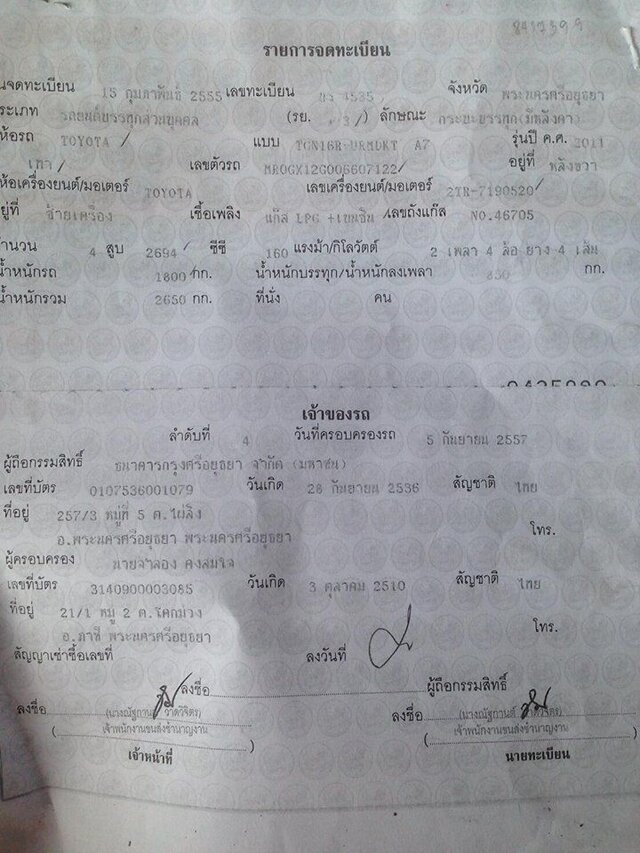 8417399
รายการจดทะเบียน
นจดทะเบียน 15 กุมภาพันธ์ 2555 เลขทะเบียน 4535 จังหวัด พระนครศรีอยุธยา
ระเภท รถยนต์บรรทุกส่วนบุคคล (รย. 3/) ลักษณะ กระบะบรรทุก(มีหลังคา)
ห้อรถ TOYOTA / แบบ TGN16R-URMDKT A7 รุ่นปี ค.ศ. 2011
เทา/ เลขตัวรถ MR0GX12G006607122/ อยู่ที่ หลังขวา
ห้อเครื่องยนต์/มอเตอร์ TOYOTA เลขเครื่องยนต์/มอเตอร์ 2TR-7190520/
ยู่ที่ ซ้ายเครื่อง เชื้อเพลิง แก๊ส LPG +เบนซิน/ เลขถังแก๊ส NO.46705
จำนวน 4 สูบ 2694 / ซีซี 160 แรงม้า/กิโลวัตต์ 2 เพลา 4 ล้อ ยาง 4 เส้น
น้ำหนักรถ 1800 กก. น้ำหนักบรรทุก/น้ำหนักลงเพลา 850 กก.
น้ำหนักรวม 2650 กก. ที่นั่ง คน
เจ้าของรถ
ลำดับที่ 4 วันที่ครอบครองรถ 5 กันยายน 2557
ผู้ถือกรรมสิทธิ์ ธนาคารกรุงศรีอยุธยา จำกัด (มหาชน)
เลขที่บัตร 0107536001079 วันเกิด 28 กันยายน 2536 สัญชาติ ไทย
ที่อยู่ 257/3 หมู่ที่ 5 ต.ไผ่ลิง
อ.พระนครศรีอยุธยา พระนครศรีอยุธยา โทร.
ผู้ครอบครอง นายจำลอง คงสมใจ
เลขที่บัตร 3140900003085 วันเกิด 3 ตุลาคม 2510 สัญชาติ ไทย
ที่อยู่ 21/1 หมู่ 2 ต.โคกม่วง
อ.ภาชี พระนครศรีอยุธยา โทร.
สัญญาเช่าซื้อเลขที่ ลงวันที่
ลงชื่อ ผู้ถือกรรมสิทธิ์
ลงชื่อ (นางณัฐกานต์ วาดวิจิตร) ลงชื่อ (นางณัฐกานต์ วาดวิจิตร)
(เจ้าพนักงานขนส่งชำนาญงาน) (เจ้าพนักงานขนส่งชำนาญงาน)
เจ้าหน้าที่ นายทะเบียน